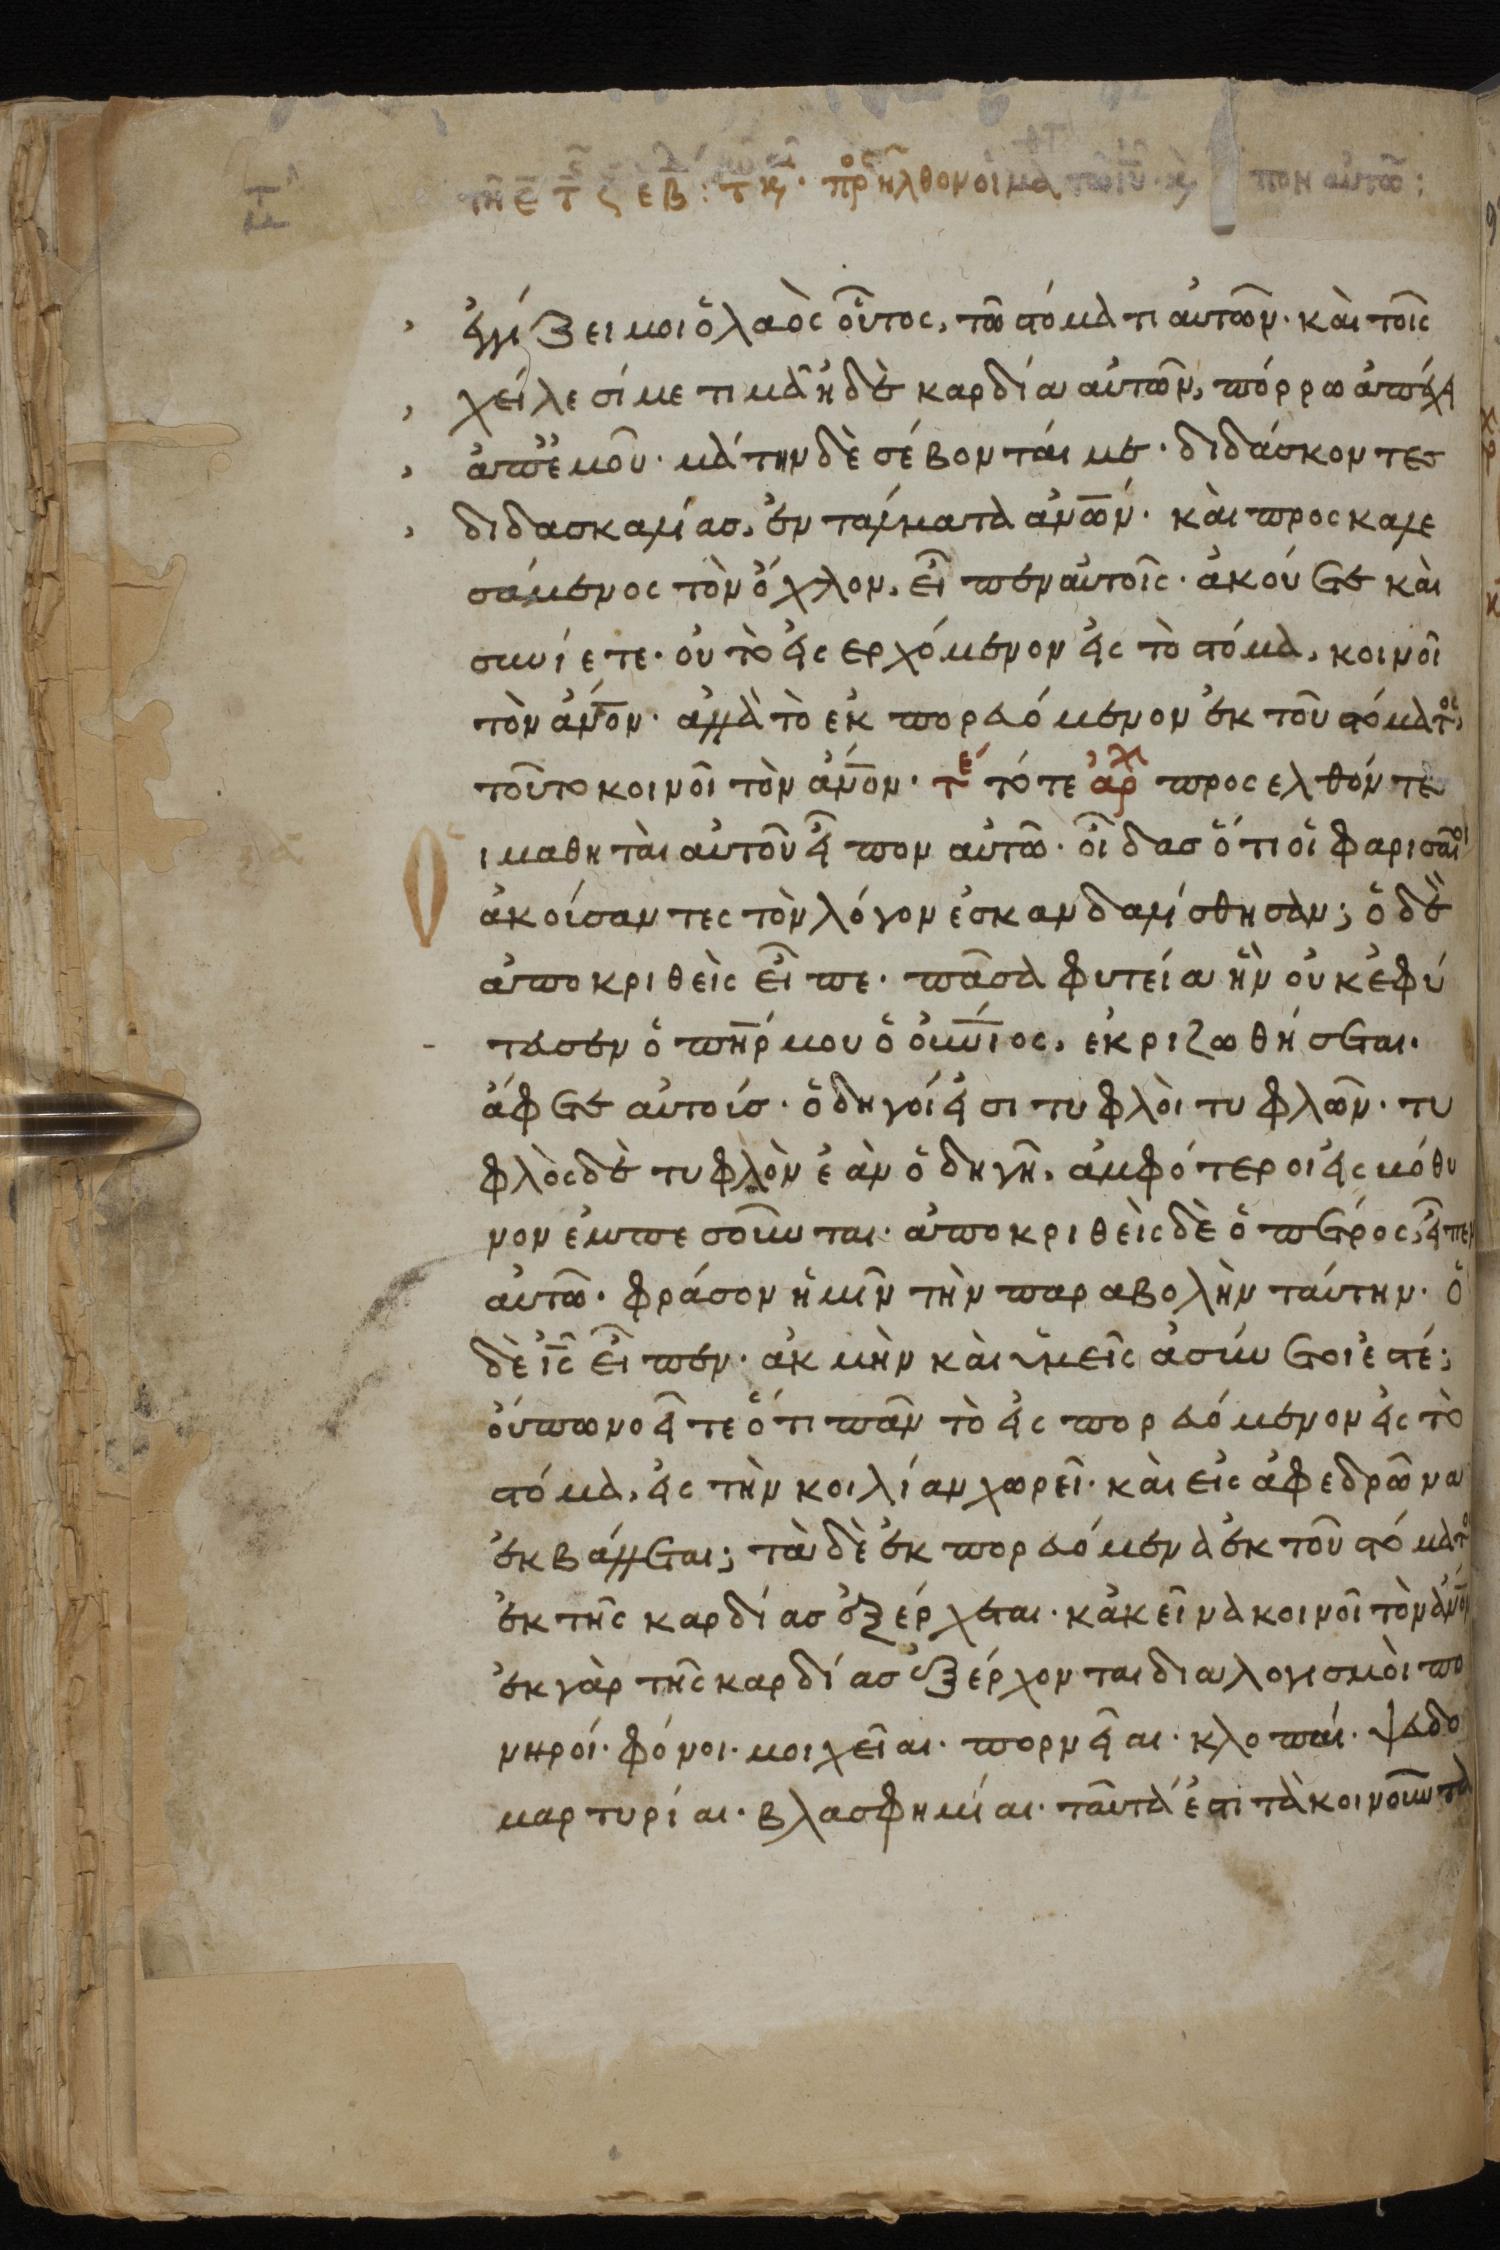 τῆ ε τ ζ εβ: τ κ. πρ ηλθον οἱ μα τῶ ιυ κ πον αὐτῶ:
ἐγγίζει μοι ὁ λαὸς οὗτος, τῶ στόματι αὐτῶν· καὶ τοῖς
χείλεσί με τιμᾶ ἡ δὲ καρδία αὐτῶν, πόρρω ἀπέχει
ἀπ' ἐμοῦ· μάτην δὲ σέβονταί με· διδάσκοντες
διδασκαλίας, ἐντάλματα ἀνων· καὶ προσκαλε
σάμενος τὸν ὄχλον, εἶπεν αὐτοῖς· ἀκούετε καὶ
συνίετε· οὐ τὸ εἰσερχόμενον εἰς τὸ στόμα, κοινοῖ
τὸν ἀνον· ἀλλὰ τὸ ἐκπορευόμενον ἐκ τοῦ στόματος,
τοῦτο κοινοῖ τὸν ἀνον· τε τότε ἀρχ προσελθόντες
ὁι μαθηταὶ αὐτοῦ εἶπον αὐτῶ· οἶδας ὅτι οἱ φαρισαῖοι
ἀκούσαντες τὸν λόγον ἐσκανδαλίσθησαν; ὁ δὲ
ἀποκριθεὶς εἶπε· πᾶσα φυτεία ἣν οὐκ ἐφύ
τευσεν ὁ πηρ μου ὁ οὐνιος, ἐκριζωθήσεται·
ἄφετε αὐτοίς· ὁδηγοί εἰσι τυφλοὶ τυφλῶν· τυ
φλὸς δὲ τυφλὸν ἐὰν ὁδηγῆ, ἀμφότεροι εἰς βόθυ
νον ἐμπεσοῦνται· ἀποκριθεὶς δὲ ὁ πέτρος, εἶπεν
αὐτῶ· φράσον ἡμῖν τὴν παραβολὴν ταύτην· ὁ
δὲ ις εἶπεν· ἀκμὴν καὶ ὑμεῖς ἀσύνετοί ἐστέ;
οὔπω νοεῖτε ὅτι πᾶν τὸ εἰσπορευόμενον εἰς τὸ
στόμα, εἰς τὴν κοιλίαν χωρεῖ· καὶ εἰς ἀφεδρῶνα
ἐκβάλλεται; τὰ δὲ ἐκπορευόμενα ἐκ τοῦ στόματος
ἐκ τῆς καρδίας ἐξέρχεται· κἀκεῖνα κοινοῖ τὸν ἀνον
ἐκ γὰρ τῆς καρδίας ἐξέρχονται διαλογισμοὶ πο
νηροί· φόνοι· μοιχεῖαι· πορνεῖαι· κλοπαί· ψευδο
μαρτυρίαι· βλασφημίαι· ταῦτά ἐστι τὰ κοινοῦντα